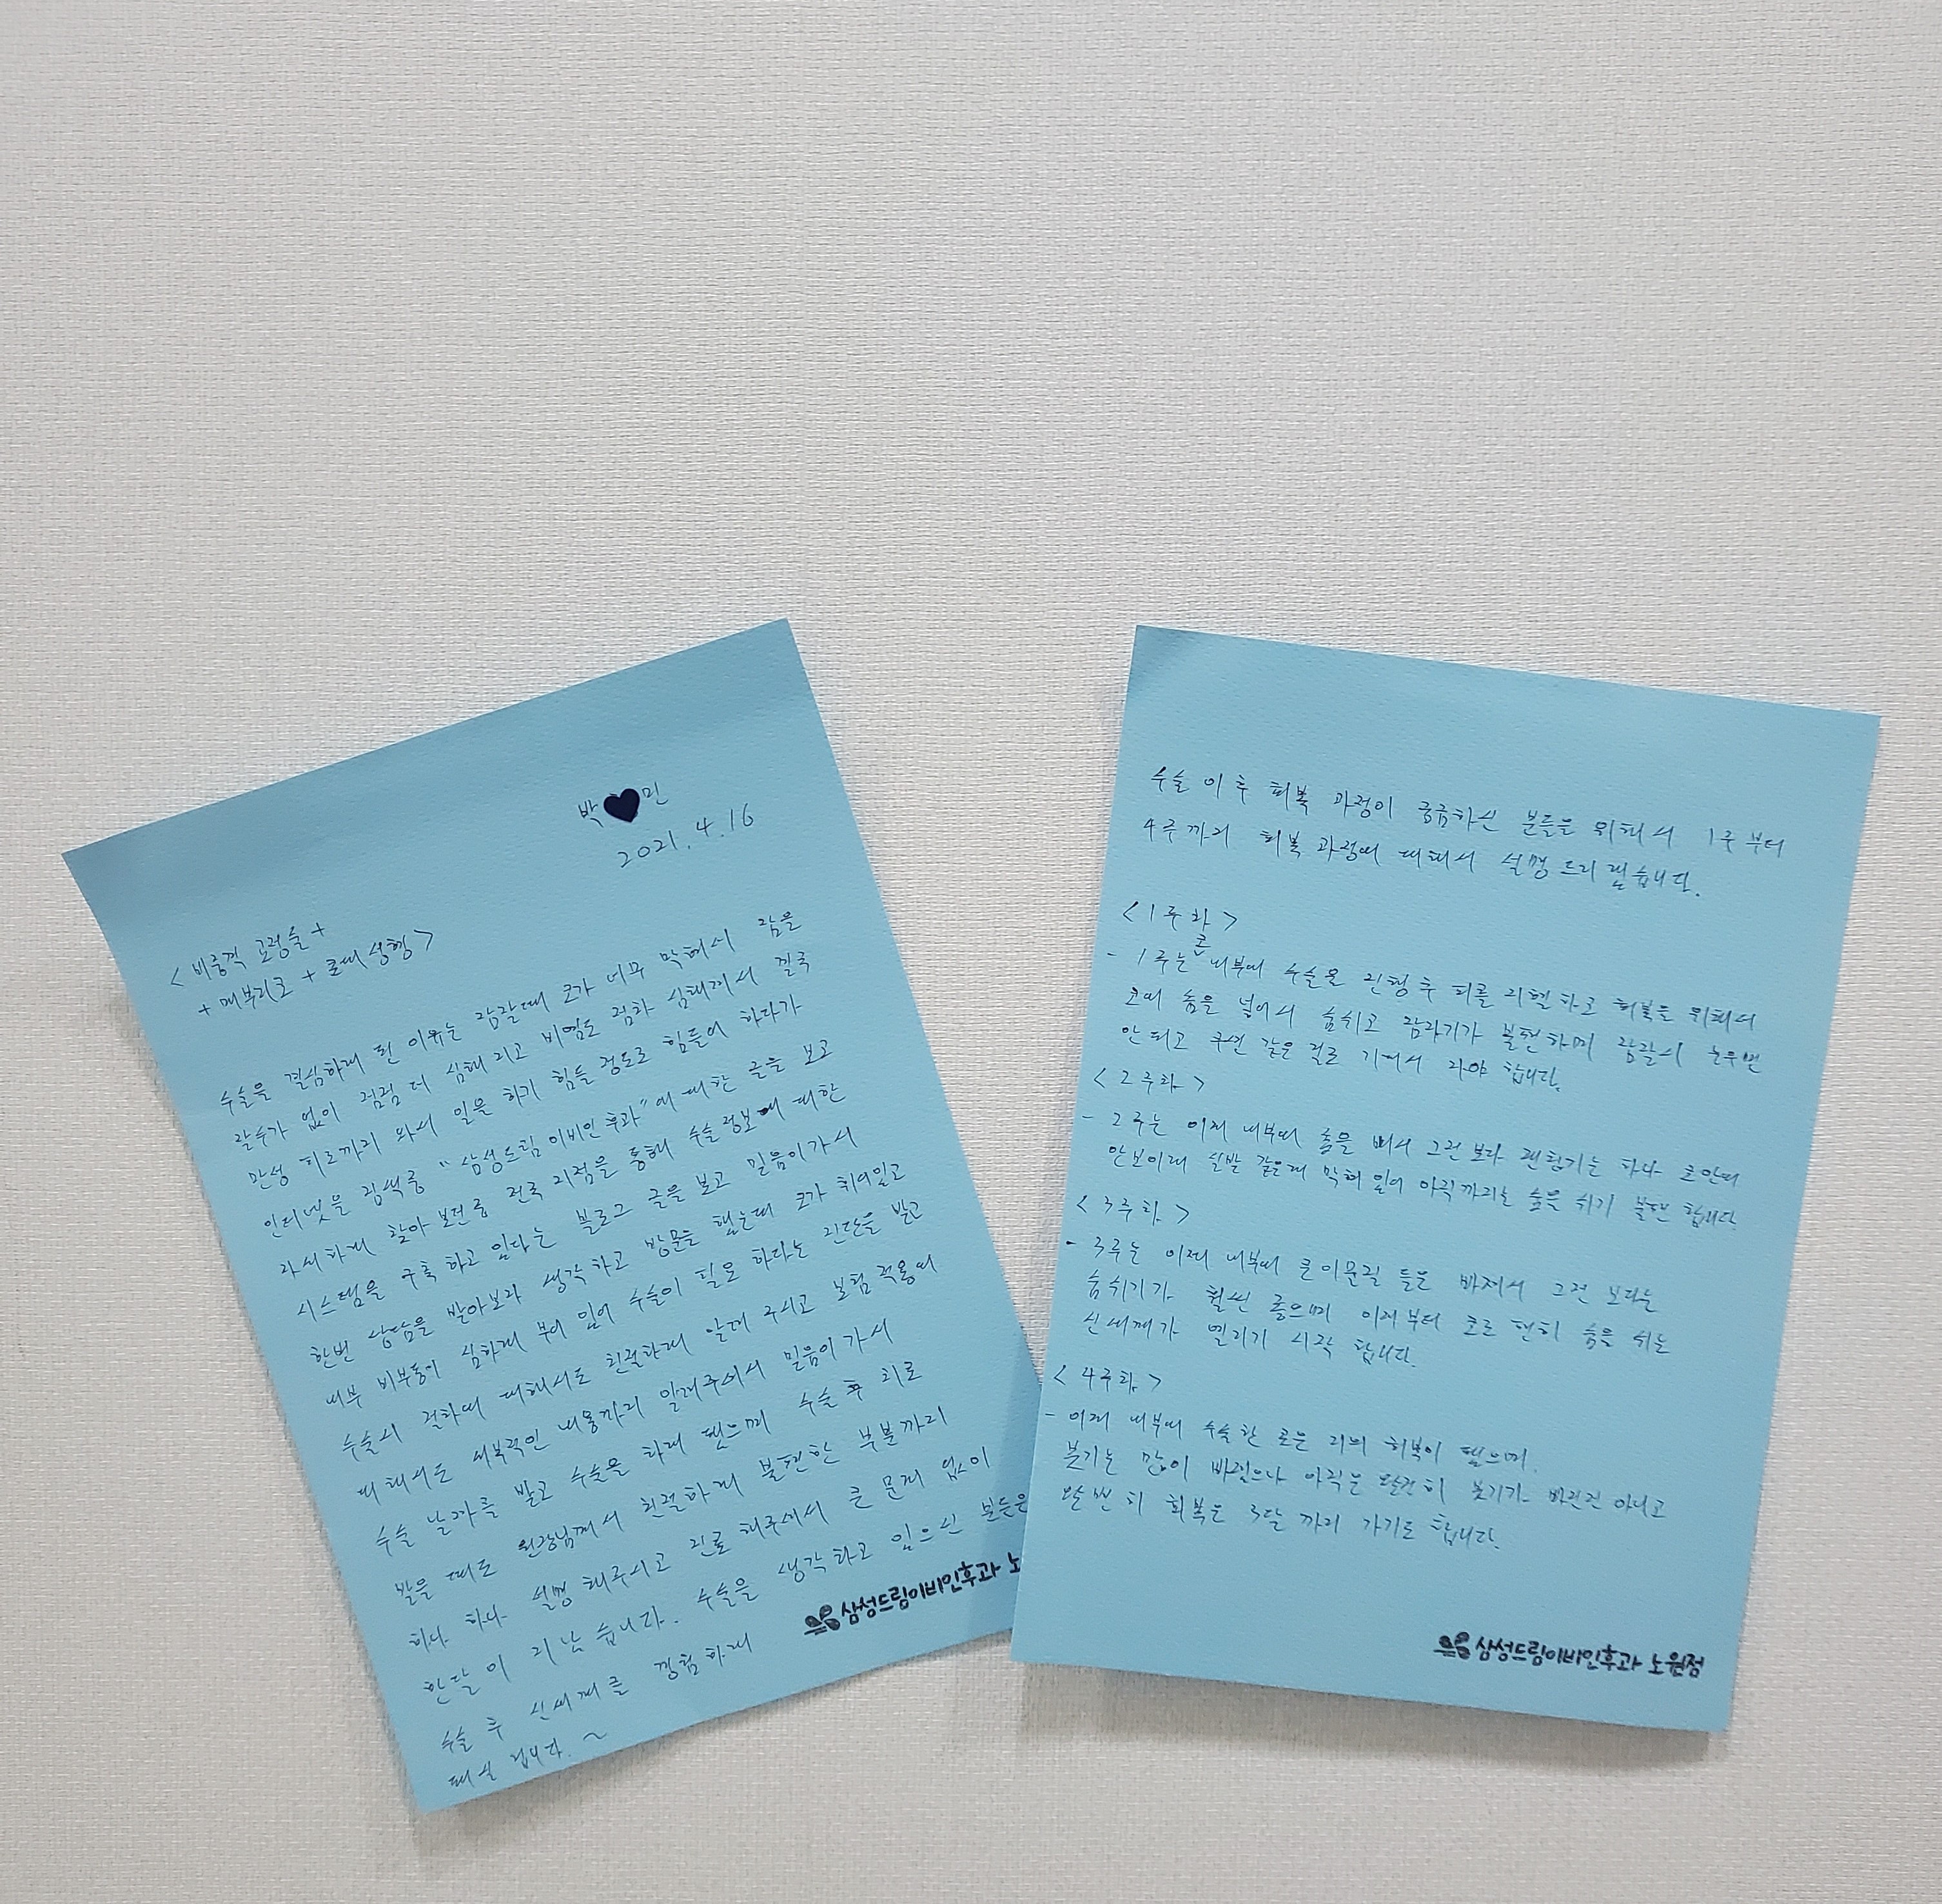 박♥민
2021. 4. 16
< 비중격 교정술 +
+ 매부리코 + 콧대 성형 >
수술을 결심하게 된 이유는 잠잘때 코가 너무 막혀서 잠을
잘수가 없이 점점 더 심해 지고 비염도 점차 심해져서 결국
만성 피로까지 와서 일을 하기 힘들 정도로 힘들어 하다가
인터넷을 검색중 "삼성드림이비인후과"에 대한 글을 보고
자세하게 찾아 보던중 전국 지점을 통해 수술정보에 대한
시스템을 구축 하고 있다는 블로그 글을 보고 믿음이가서
한번 상담을 받아보자 생각하고 방문을 했는데 코가 휘어있고
내부 비부통이 심하게 부어 있어 수술이 필요 하다는 진단을 받고
수술시 절차에 대해서도 친절하게 알려 주시고 보험 적용에
대해서도 세부적인 내용까지 알려주셔서 믿음이 가서
수술 날짜를 받고 수술을 하게 됐으며 수술 후 치료
받을 때도 원장님께서 친절하게 불편한 부분까지
하나 하나 설명 해주시고 진료 해주셔서 큰 문제 없이
한달이 지났습니다. 수술을 생각하고 있으신 분들은
수술 후 신세계를 경험하게
되실 겁니다. ~
삼성드림이비인후과 노
수술 이후 회복 과정이 궁금하신 분들을 위해서 1주부터
4주까지 회복 과정에 대해서 설명드리겠습니다.
< 1주차 >
- 1주는 코 내부에 수술을 진행 후 피를 지혈하고 회복을 위해서
코에 솜을 넣어서 숨쉬고 잠자기가 불편하며 잠잘시 누우면
안되고 쿠션 같은 걸로 기대서 자야 합니다.
< 2주차 >
- 2주는 이제 내부에 솜을 빼서 그전 보다 괜찮기는 하나 코안에
안보이게 실밥 같은게 막혀 있어 아직까지는 숨을 쉬기 불편합니다.
< 3주차 >
- 3주는 이제 내부에 큰이물질 들은 빠져서 그전 보다는
숨쉬기가 훨씬 좋으며 이제부터 코로 편히 숨을 쉬는
신세계가 열리기 시작 합니다.
< 4주차 >
- 이제 내부에 수술한 곳은 거의 회복이 됐으며.
붓기는 많이 빠졌으나 아직은 완전히 붓기가 빠진건 아니고
완벽히 회복은 3달 까지 가기도 합니다.
삼성드림이비인후과 노원점